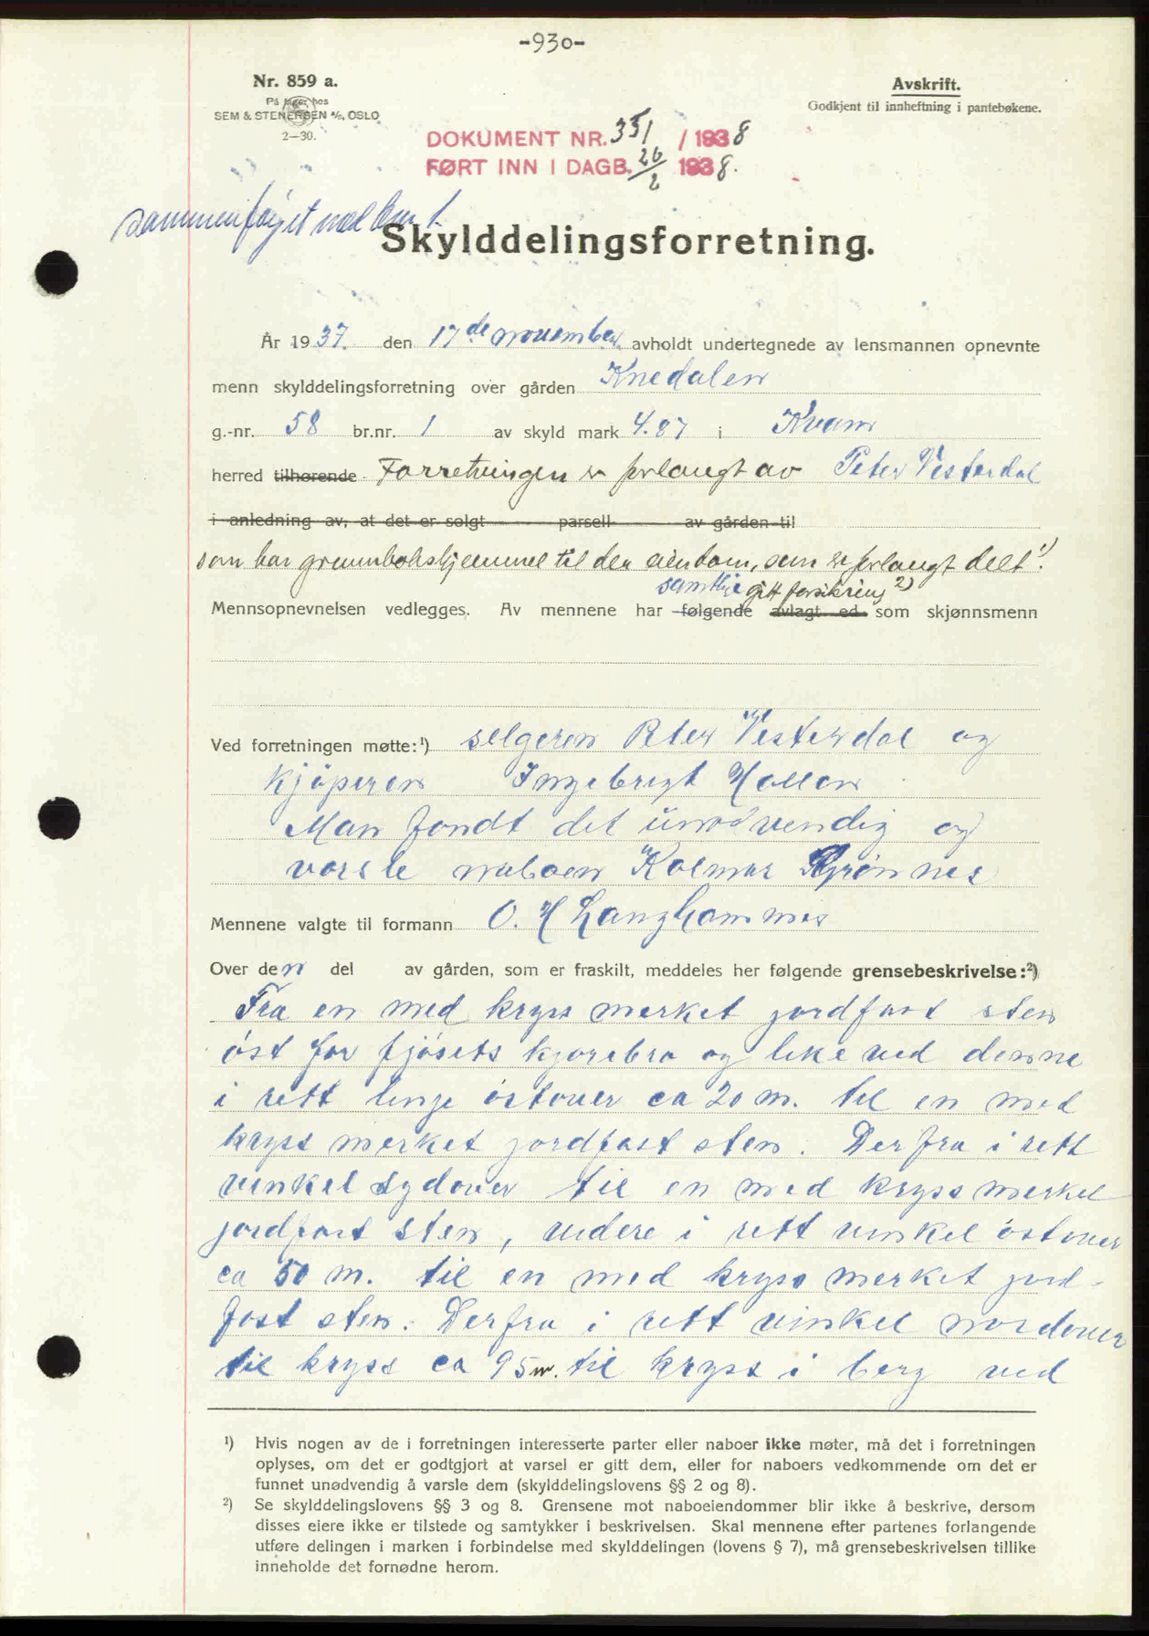 -930-
Nr. 859 a.
På lager hos
SEM & STENERSEN A/S, OSLO
2—30.
Avskrift.
Godkjent til innheftning i pantebøkene.
DOKUMENT NR. 351 / 1938
FØRT INN I DAGB. 26/2 1938.
sammenføyet med bnr 1.
Skylddelingsforretning.
År 1937. den 17de november avholdt undertegnede av lensmannen opnevnte
menn skylddelingsforretning over gården Knedalen
g.-nr. 58 br.nr. 1 av skyld mark 4.87 i Kvam
herred tilhørende Forretningen er forlangt av Peter Vesterdal
i anledning av, at det er solgt parsell av gården til
som har grunnbokshjemmel til den eiendom, som er forlangt delt 1).
samtlige gitt forsikring 2)
Mennsopnevnelsen vedlegges. Av mennene har følgende avlagt ed som skjønnsmenn
Ved forretningen møtte:¹) selgeren Peter Vesterdal og
kjøperen Ingebrigt Hallen
Man fandt det unødvendig og
varsle naboen Kolmar Grønnes
Mennene valgte til formann O. H Langhammer
Over den del av gården, som er fraskilt, meddeles her følgende grensebeskrivelse:²)
Fra en med kryss merket jordfast sten
øst for fjøsets kjørebro og like ved denne
i rett linje østover ca 20 m. til en med
kryss merket jordfast sten. Derfra i rett
vinkel sydover til en med kryss merket
jordfast sten, videre i rett vinkel østover
ca 50 m. til en med kryss merket jord-
fast sten. Derfra i rett vinkel nordover
til kryss ca 95 m. til kryss i berg ved
¹) Hvis nogen av de i forretningen interesserte parter eller naboer ikke møter, må det i forretningen
oplyses, om det er godtgjort at varsel er gitt dem, eller for naboers vedkommende om det er
funnet unødvendig å varsle dem (skylddelingslovens §§ 2 og 8).
²) Se skylddelingslovens §§ 3 og 8. Grensene mot naboeiendommer blir ikke å beskrive, dersom
disses eiere ikke er tilstede og samtykker i beskrivelsen. Skal mennene efter partenes forlangende
utføre delingen i marken i forbindelse med skylddelingen (lovens § 7), må grensebeskrivelsen tillike
inneholde det fornødne herom.